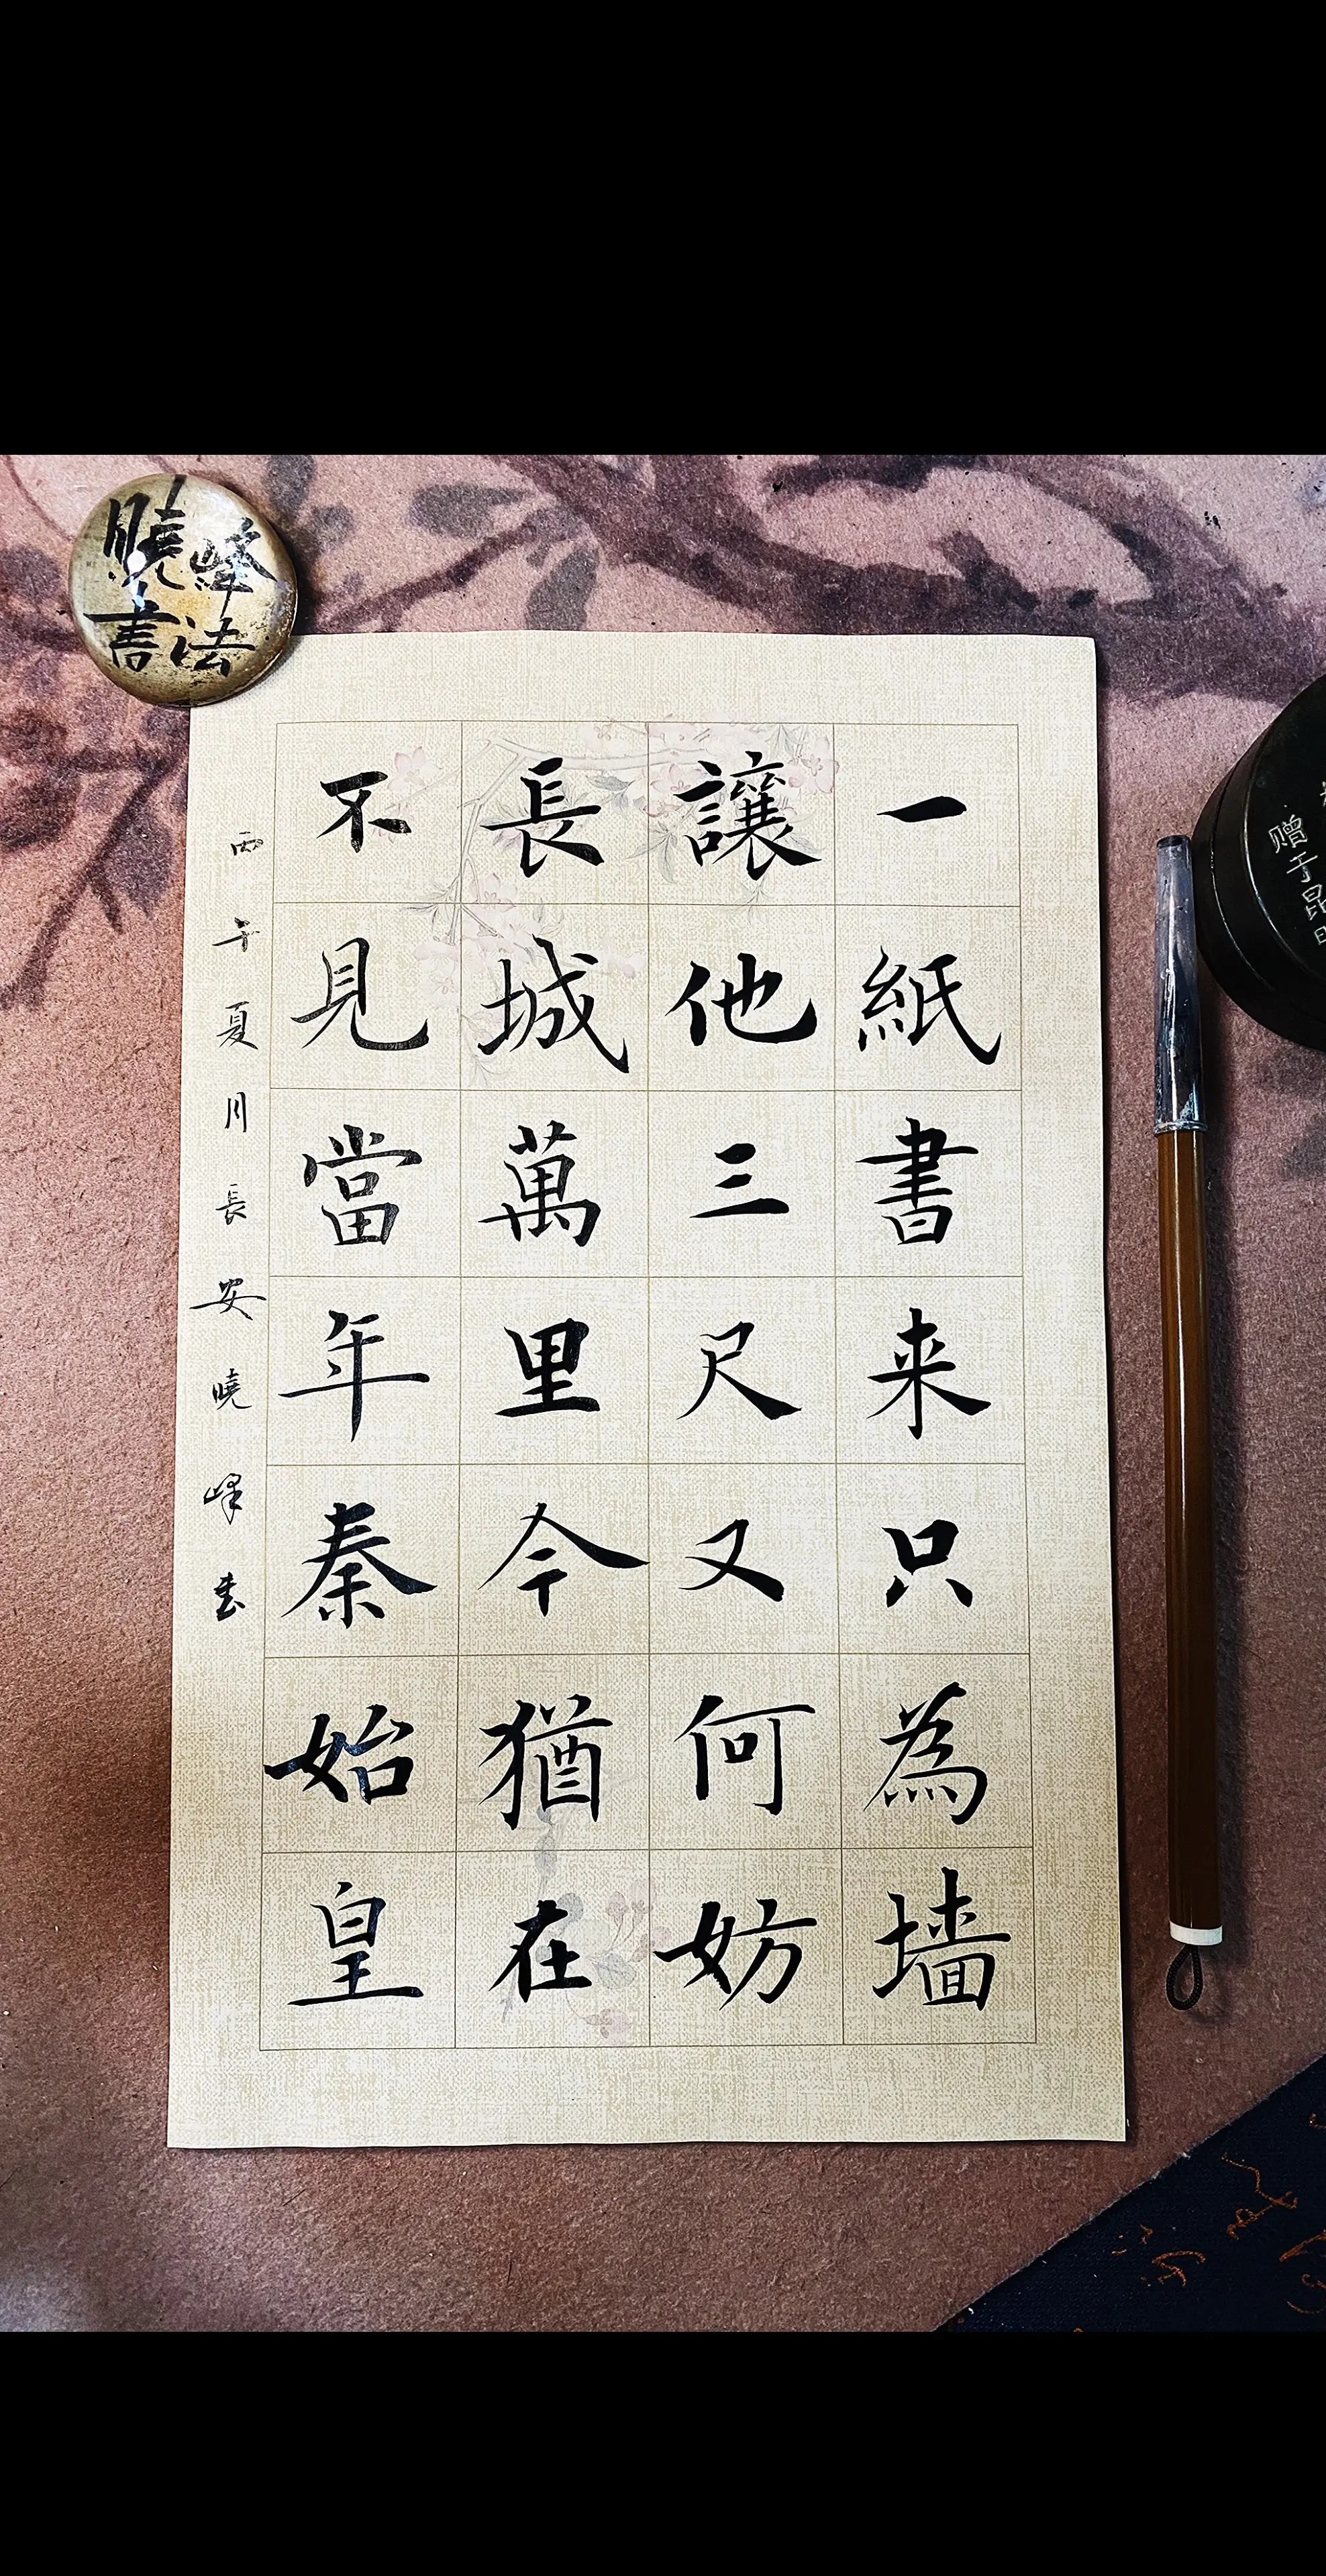 一紙書来只為墻
讓他三尺又何妨
長城萬里今猶在
不見當年秦始皇
丙午夏月長安曉峰書
曉峰
書法
赠于昆